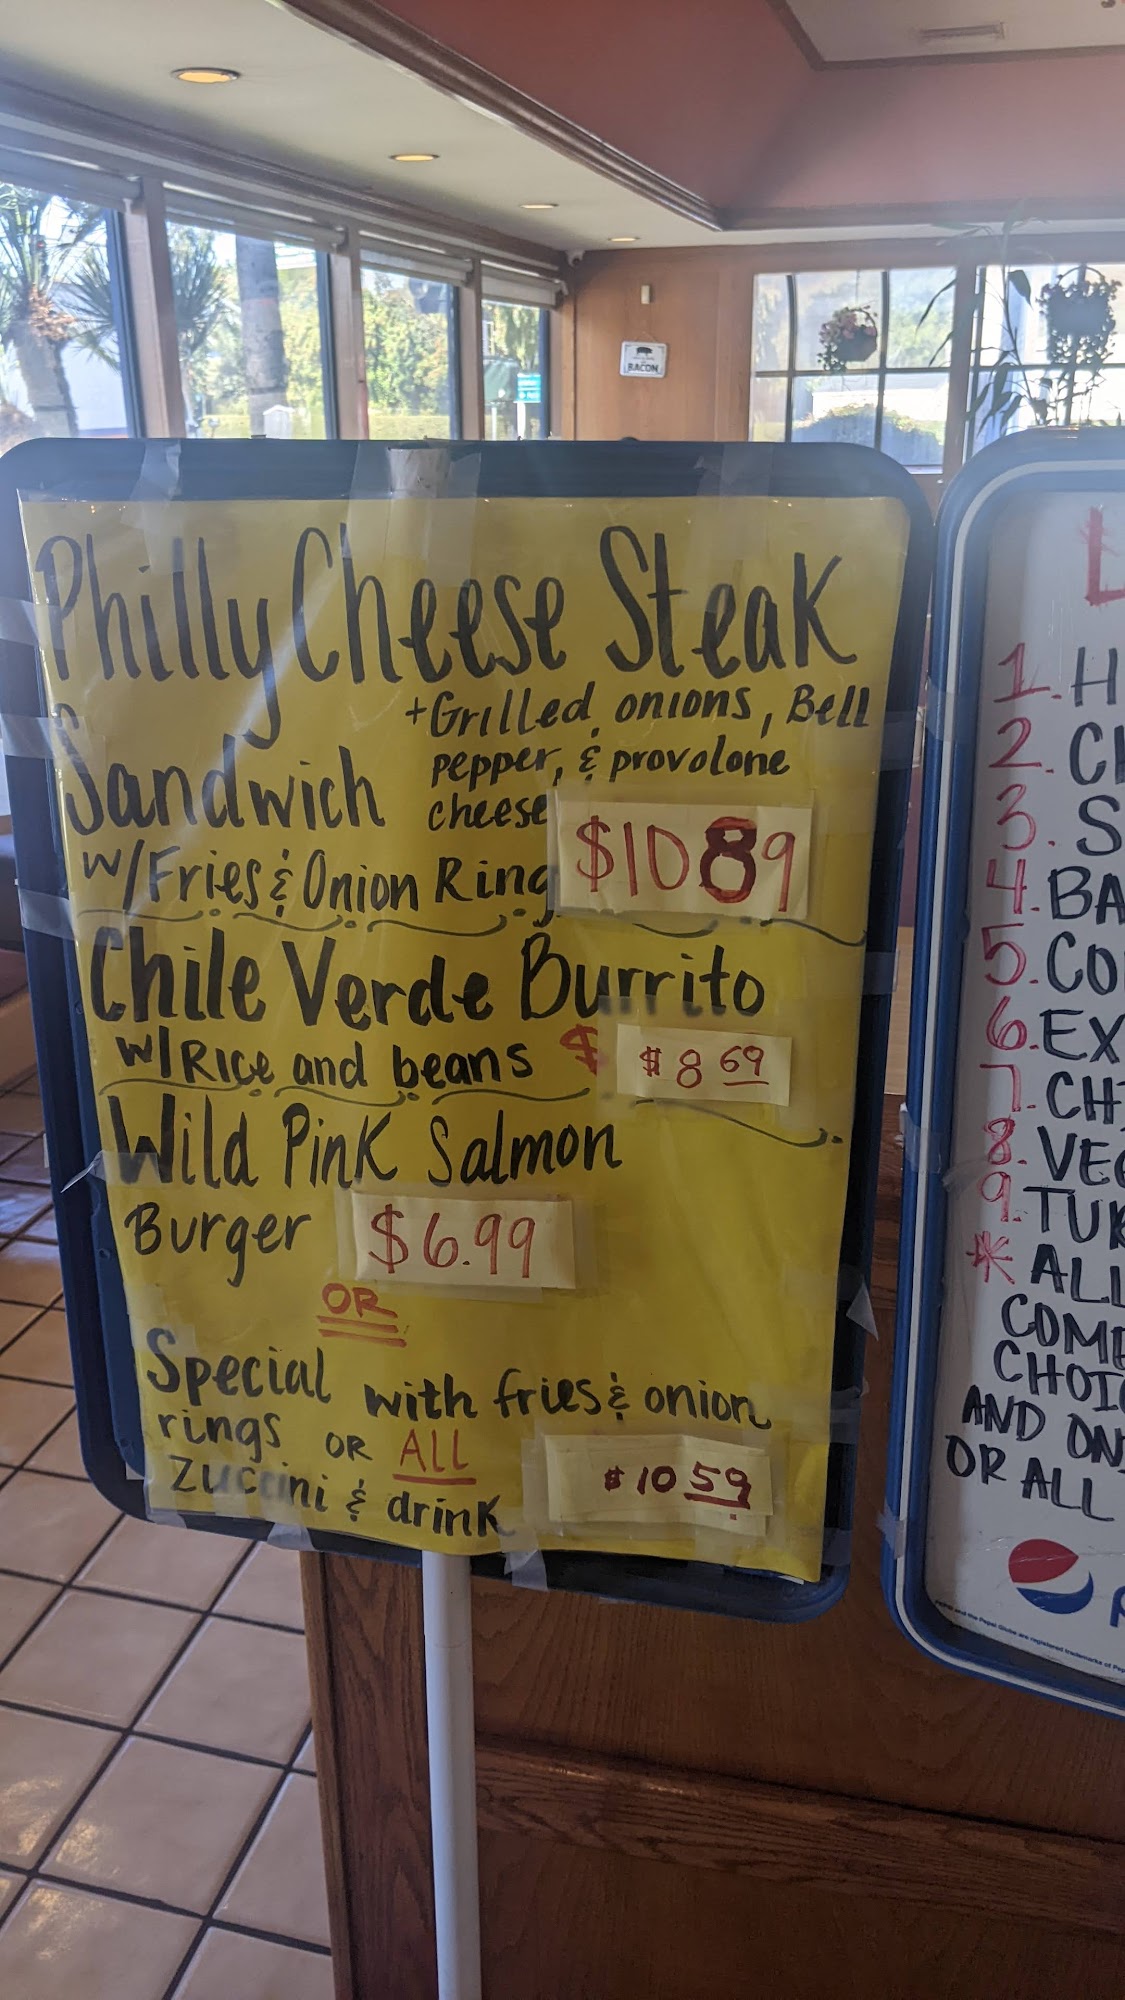 BACON
Philly Cheese Steak
+Grilled onions, Bell
pepper, & provolone
cheese
Sandwich
w/Fries & Onion Ring
$10 89
Chile Verde Burrito
w/Rice and beans $
$8 69
Wild Pink Salmon
Burger
$6.99
OR
Special with fries & onion
rings OR ALL
Zuccini & drink
$10 59
L
1. H
2. CH
3. S
4. BA
5. CO
6. EX
7. CH
8. VEG
9. TUR
* ALL
COMB
CHOIC
AND ON
OR ALL